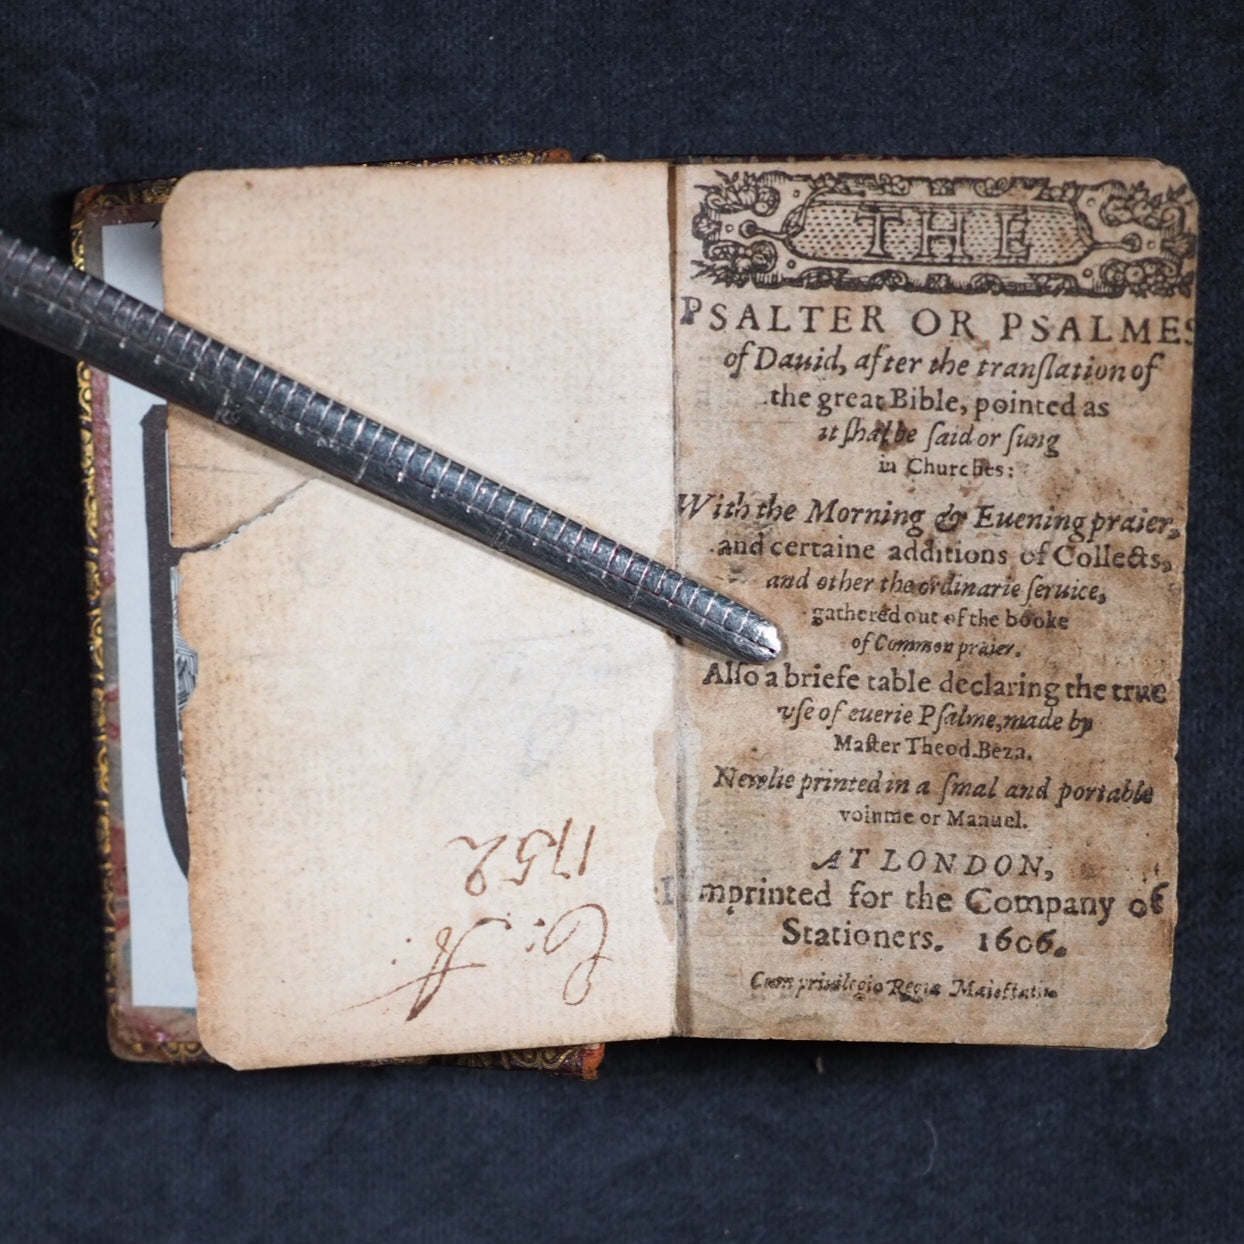 C: A:
1752
THE
PSALTER OR PSALMES
of Dauid, after the tranſlation of
the great Bible, pointed as
it ſhal be ſaid or ſung
in Churches:
With the Morning & Euening praier,
and certaine additions of Collects,
and other the ordinarie ſeruice,
gathered out of the booke
of Common praier.
Alſo a briefe table declaring the true
vſe of euerie Pſalme, made by
Maſter Theod. Beza.
Newlie printed in a ſmal and portable
volume or Manuel.
AT LONDON,
Imprinted for the Company of
Stationers. 1606.
Cum priuilegio Regiæ Maieſtatis.